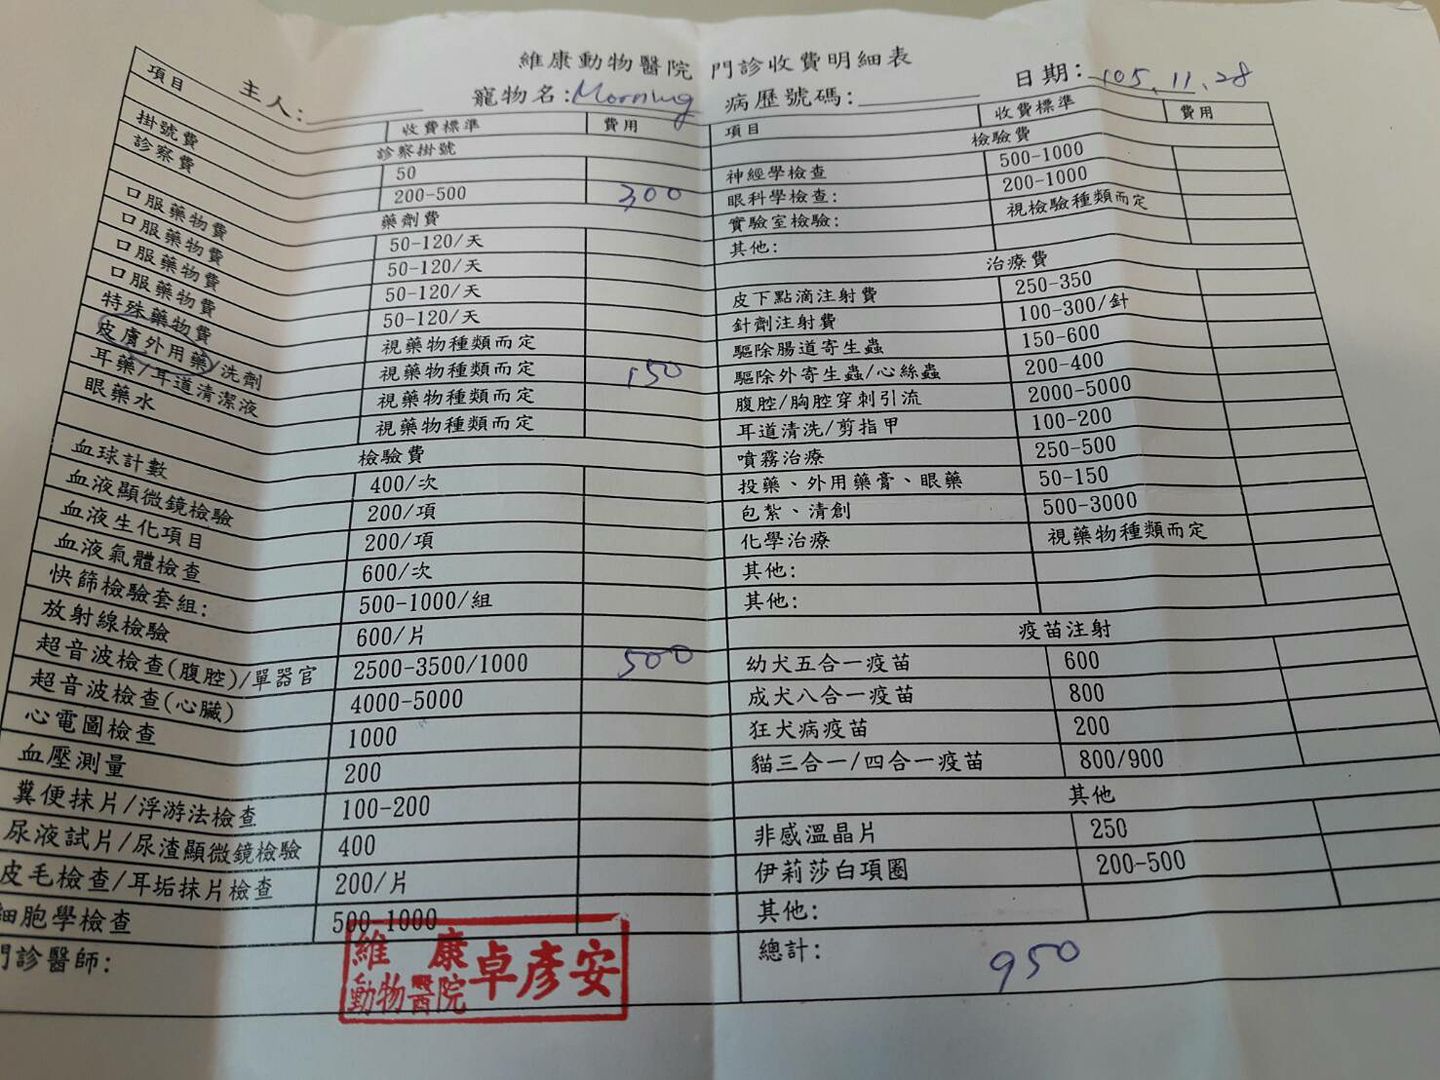 維康動物醫院 門診收費明細表
主人: 寵物名:Morning 病歷號碼: 日期: 105.11.28
項目 收費標準 費用
診察掛號
掛號費 50
診察費 200-500 300
藥劑費
口服藥物費 50-120/天
口服藥物費 50-120/天
口服藥物費 50-120/天
口服藥物費 50-120/天
特殊藥物費 視藥物種類而定
皮膚外用藥/洗劑 視藥物種類而定 150
耳藥/耳道清潔液 視藥物種類而定
眼藥水 視藥物種類而定
檢驗費
血球計數 400/次
血液顯微鏡檢驗 200/項
血液生化項目 200/項
血液氣體檢查 600/次
快篩檢驗套組: 500-1000/組
放射線檢驗 600/片
超音波檢查(腹腔)/單器官 2500-3500/1000 500
超音波檢查(心臟) 4000-5000
心電圖檢查 1000
血壓測量 200
糞便抹片/浮游法檢查 100-200
尿液試片/尿渣顯微鏡檢驗 400
皮毛檢查/耳垢抹片檢查 200/片
細胞學檢查 500-1000
門診醫師:
維康動物醫院 卓彥安
項目 收費標準 費用
檢驗費
神經學檢查 500-1000
眼科學檢查: 200-1000
實驗室檢驗: 視檢驗種類而定
其他:
治療費
皮下點滴注射費 250-350
針劑注射費 100-300/針
驅除腸道寄生蟲 150-600
驅除外寄生蟲/心絲蟲 200-400
腹腔/胸腔穿刺引流 2000-5000
耳道清洗/剪指甲 100-200
噴霧治療 250-500
投藥、外用藥膏、眼藥 50-150
包紮、清創 500-3000
化學治療 視藥物種類而定
其他:
其他:
疫苗注射
幼犬五合一疫苗 600
成犬八合一疫苗 800
狂犬病疫苗 200
貓三合一/四合一疫苗 800/900
其他
非感溫晶片 250
伊莉莎白項圈 200-500
其他:
總計: 950